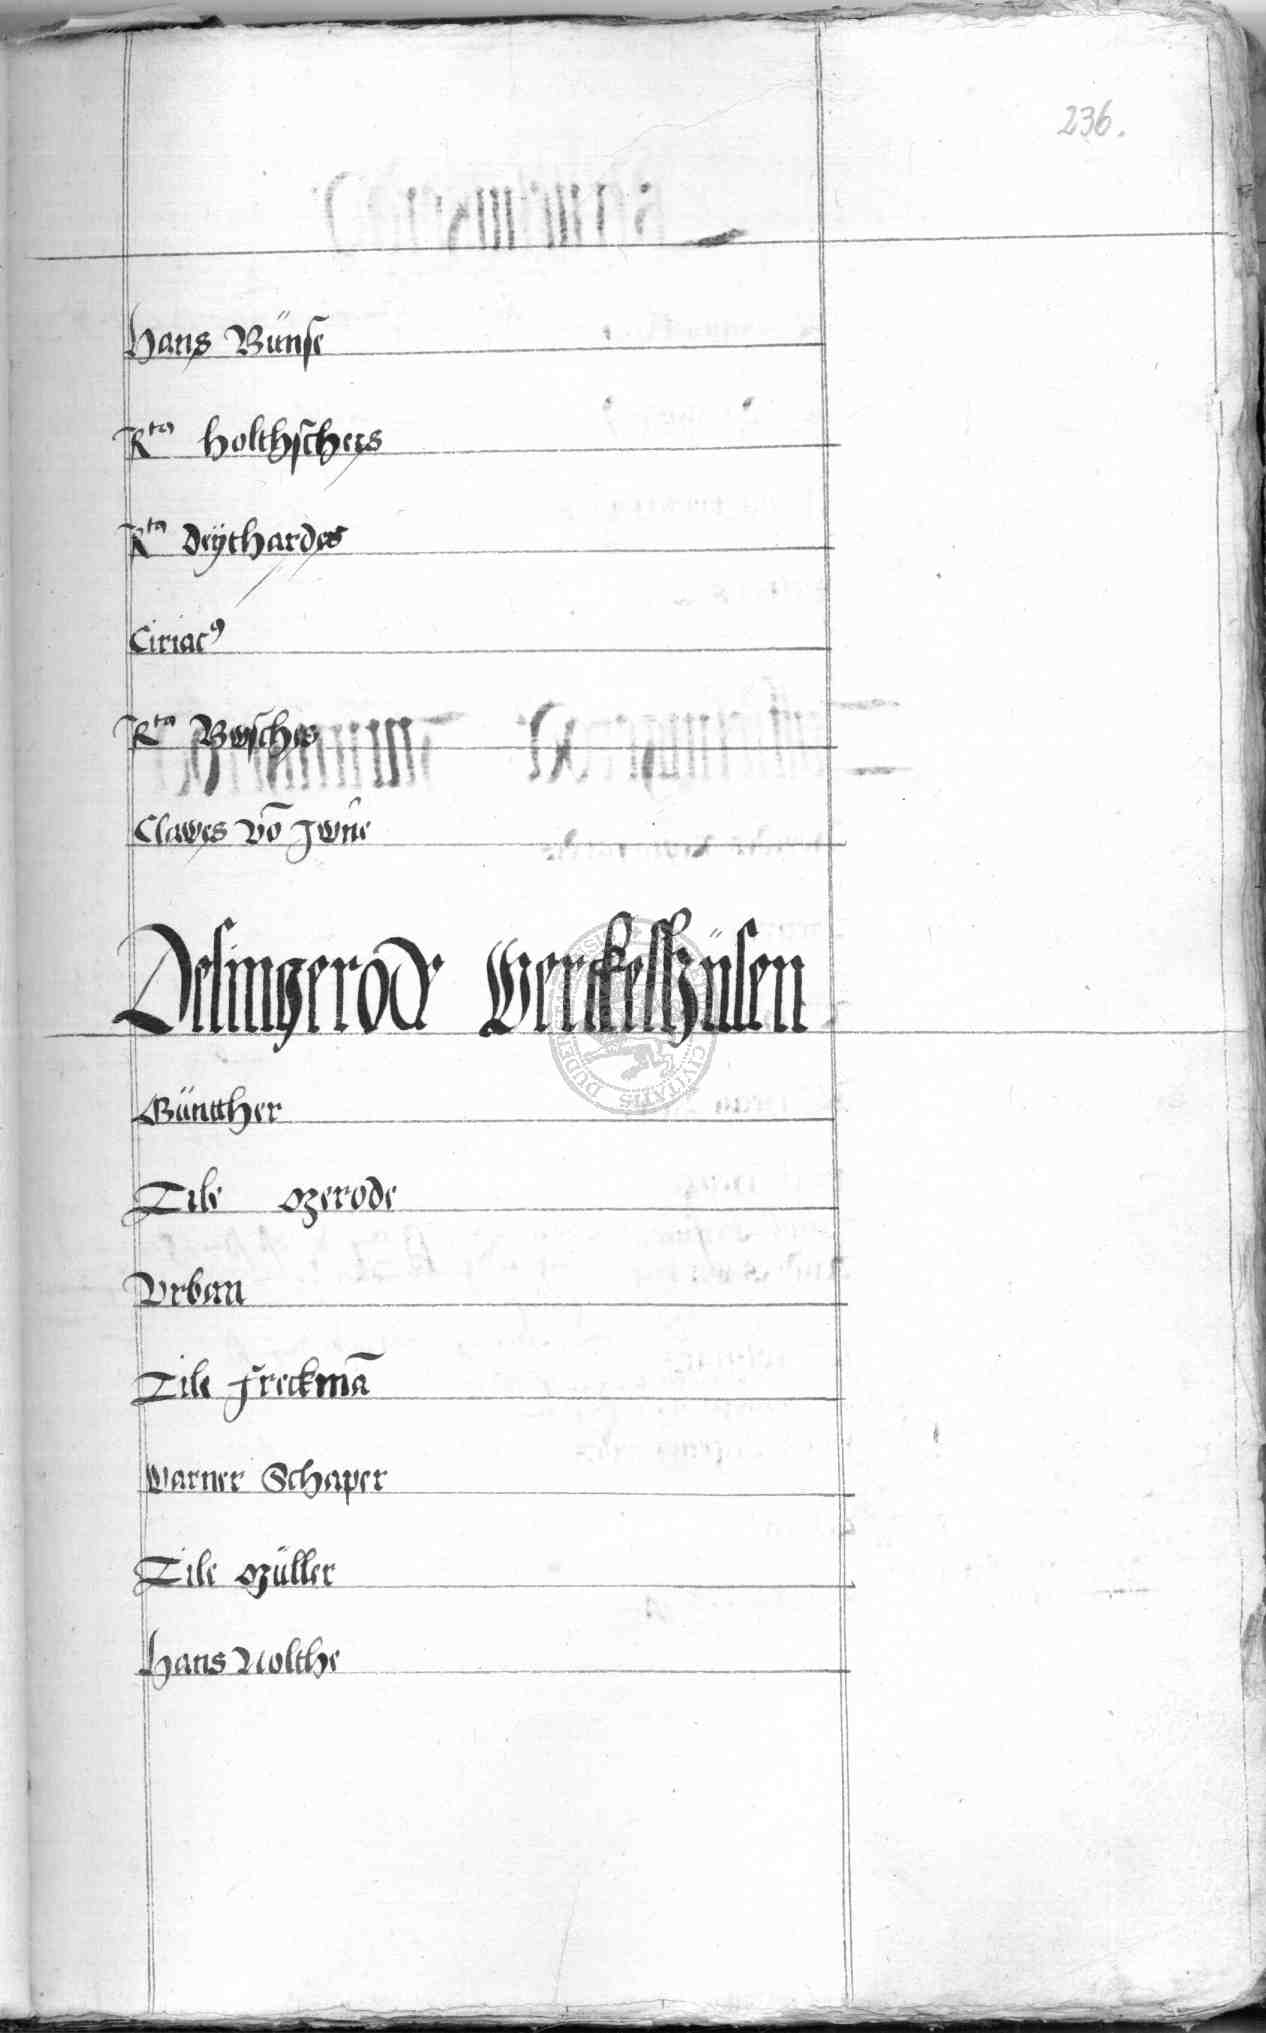 236.
Hans Bünse
Rta Holthschers
Rta Deÿthardes
Ciriacꝰ
Rta Bosches
Clawes vō Jwne
Desingerode Werckelshüsen
Güntther
Tile Ozerode
Vrban
Tile Freckmā
Warner Schaper
Tile Müller
Hans Nolthe
CIVITATIS DUDER